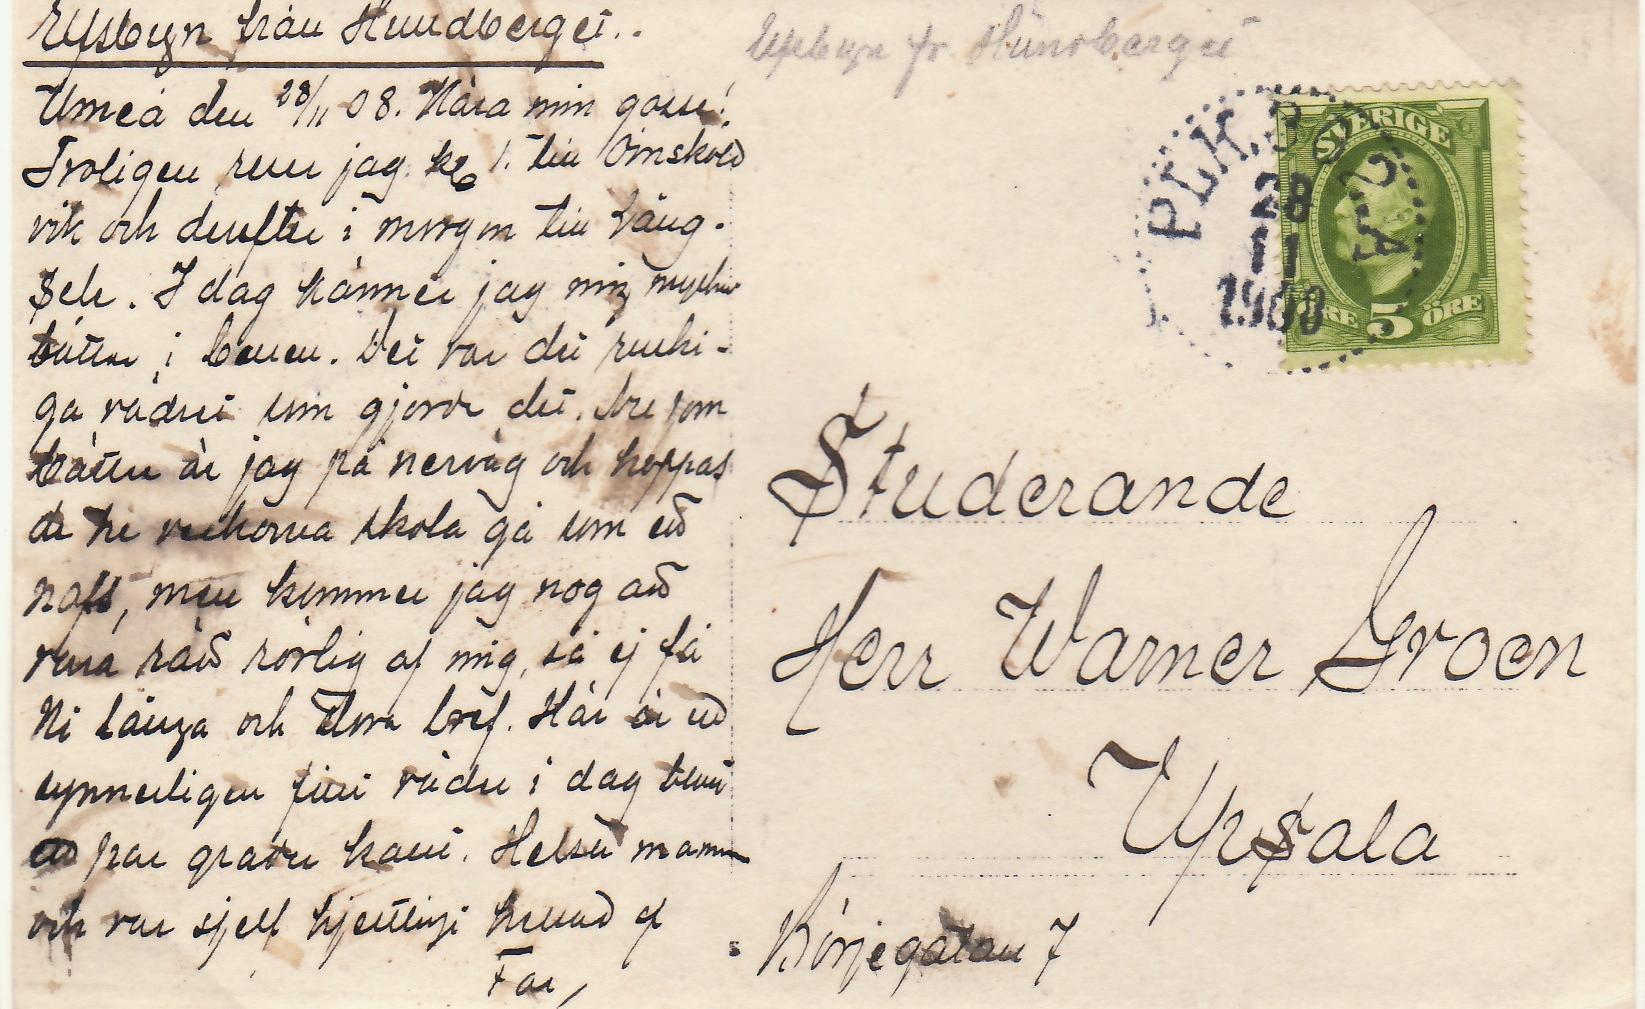 Elfsbyn från Hundberget..
Umeå den 28/11 08. Kära min gosse!
Troligen reser jag kl 1. till Örnskölds
vik och derefter i morgon till Lång-
sele. I dag känner jag mig mycket
bättre i benen. Det var det ruski-
ga vädret som gjorde det. som
bättre är jag på nervåg och hoppas
de tre veckorna skola gå som ett
nafs, men kommer jag nog att
rörlig af mig, så ej få
Ni långa och stora bref. Här är ett
synnerligen fint väder i dag blott
ett par grader kallt. Helsa mamma
och var sjelf hjertligt kramad af
Far,
Elfsbyn fr. Hundberget
PLK. 3
28
11
1908
SVERIGE
5 ÖRE
Studerande
Herr Warner Groen
Upsala
Börjegatan 7